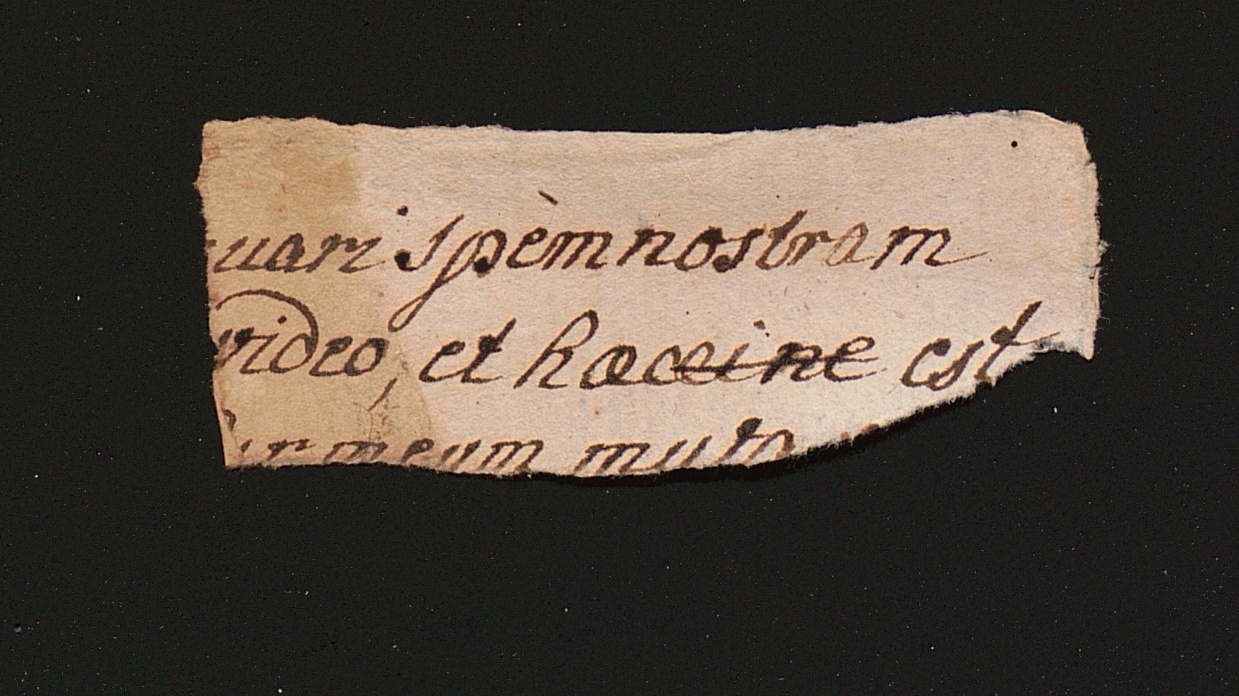 uari spèm nostram
video, et hoccine est
ur meum muta